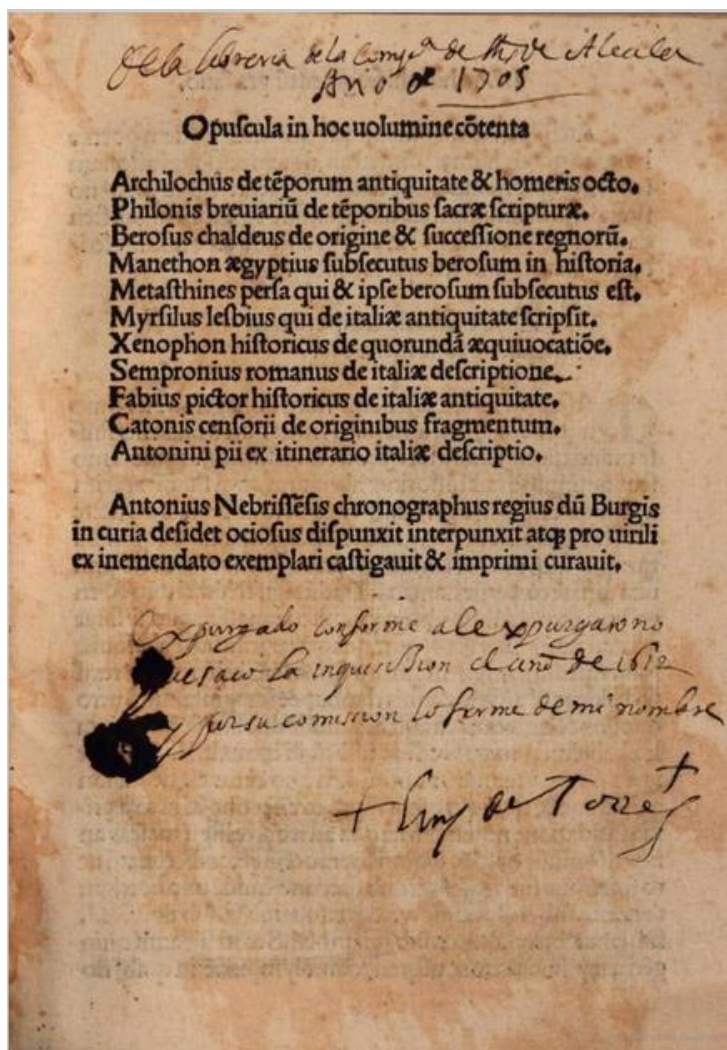 de la libreria de la Comp.ª de Jhs de Alcala
Año de 1705
Opuſcula in hoc uolumine cōtenta
Archilochus de tēporum antiquitate & homeris octo.
Philonis breuiariū de tēporibus ſacræ ſcripturæ.
Beroſus chaldeus de origine & ſucceſſione regnorū.
Manethon ægyptius ſubſecutus beroſum in hiſtoria.
Metaſthines perſa qui & ipſe beroſum ſubſecutus eſt.
Myrſilus leſbius qui de italiæ antiquitate ſcripſit.
Xenophon hiſtoricus de quorundā æquiuocatiōe.
Sempronius romanus de italiæ deſcriptione.
Fabius pictor hiſtoricus de italiæ antiquitate.
Catonis cenſorii de originibus fragmentum.
Antonini pii ex itinerario italiæ deſcriptio.
Antonius Nebriſſēſis chronographus regius dū Burgis
in curia deſidet ocioſus diſpunxit interpunxit atqꝫ pro uirili
ex inemendato exemplari caſtigauit & imprimi curauit.
Expurgado conforme al expurgatorio
que saco la inquisicion el año de 1612
y por su comission lo firme de mi nombre
de Torres